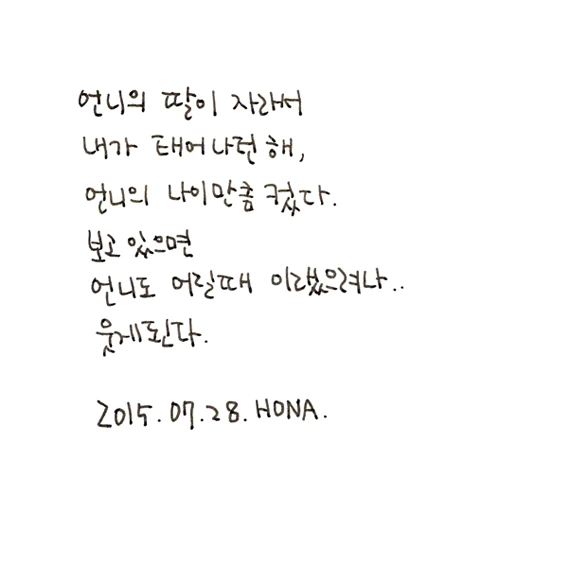 언니의 딸이 자라서
내가 태어나던 해,
언니의 나이만큼 컸다.
보고 있으면
언니도 어릴때 이랬으려나..
웃게된다.
2015.07.28. HONA.